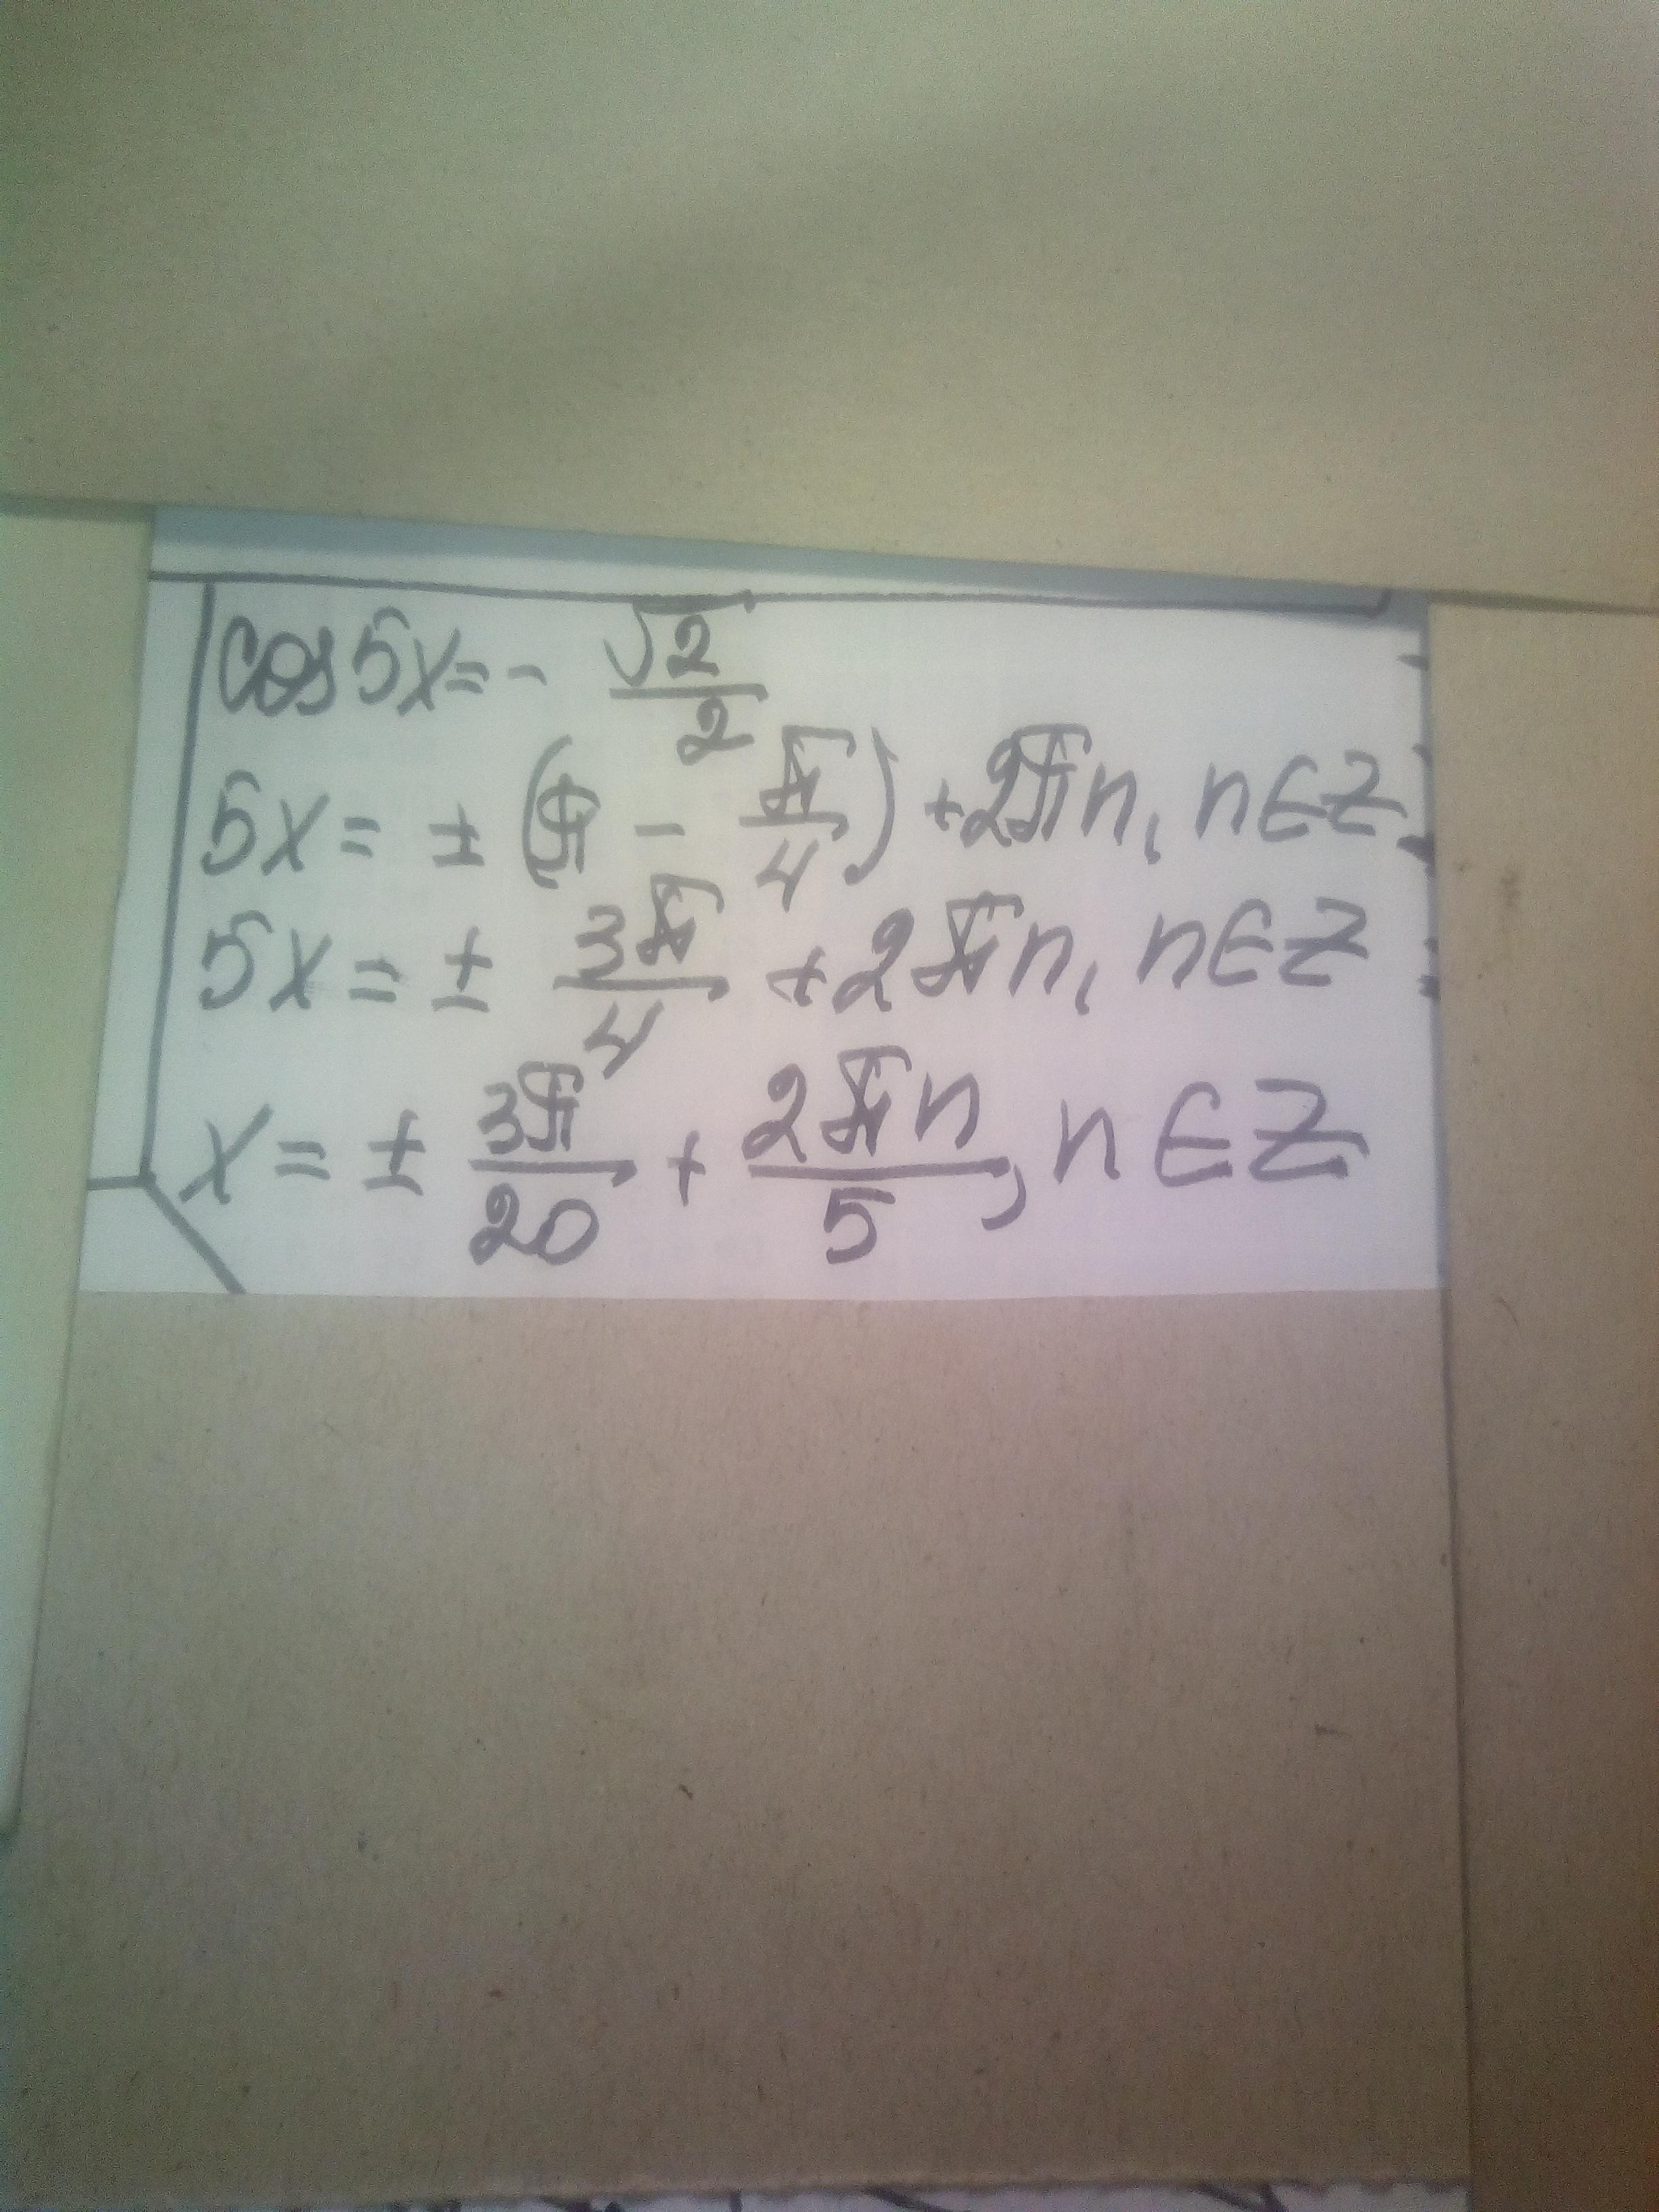 cos 5x = - √2/2
5x = ± (π - π/4) + 2πn, n ∈ Z
5x = ± 3π/4 + 2πn, n ∈ Z
x = ± 3π/20 + 2πn/5, n ∈ Z